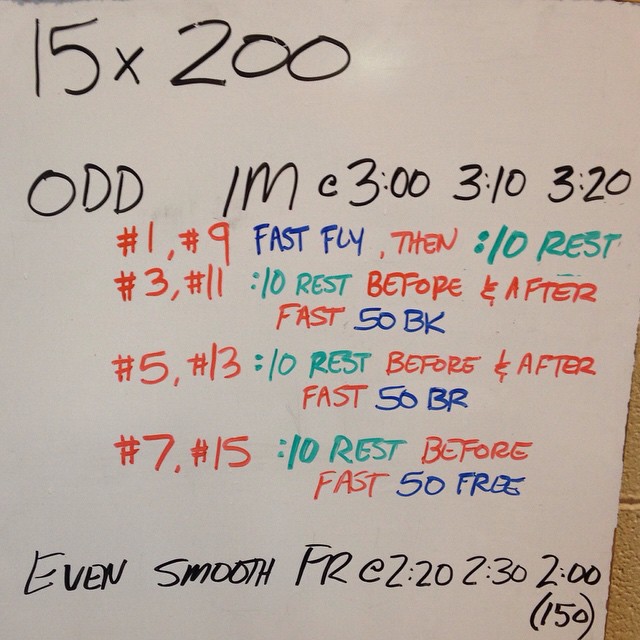 15 x 200
ODD IM @ 3:00 3:10 3:20
#1, #9 FAST FLY, THEN :10 REST
#3, #11 :10 REST BEFORE & AFTER
FAST 50 BK
#5, #13 :10 REST BEFORE & AFTER
FAST 50 BR
#7, #15 :10 REST BEFORE
FAST 50 FREE
EVEN SMOOTH FR @ 2:20 2:30 2:00
(150)